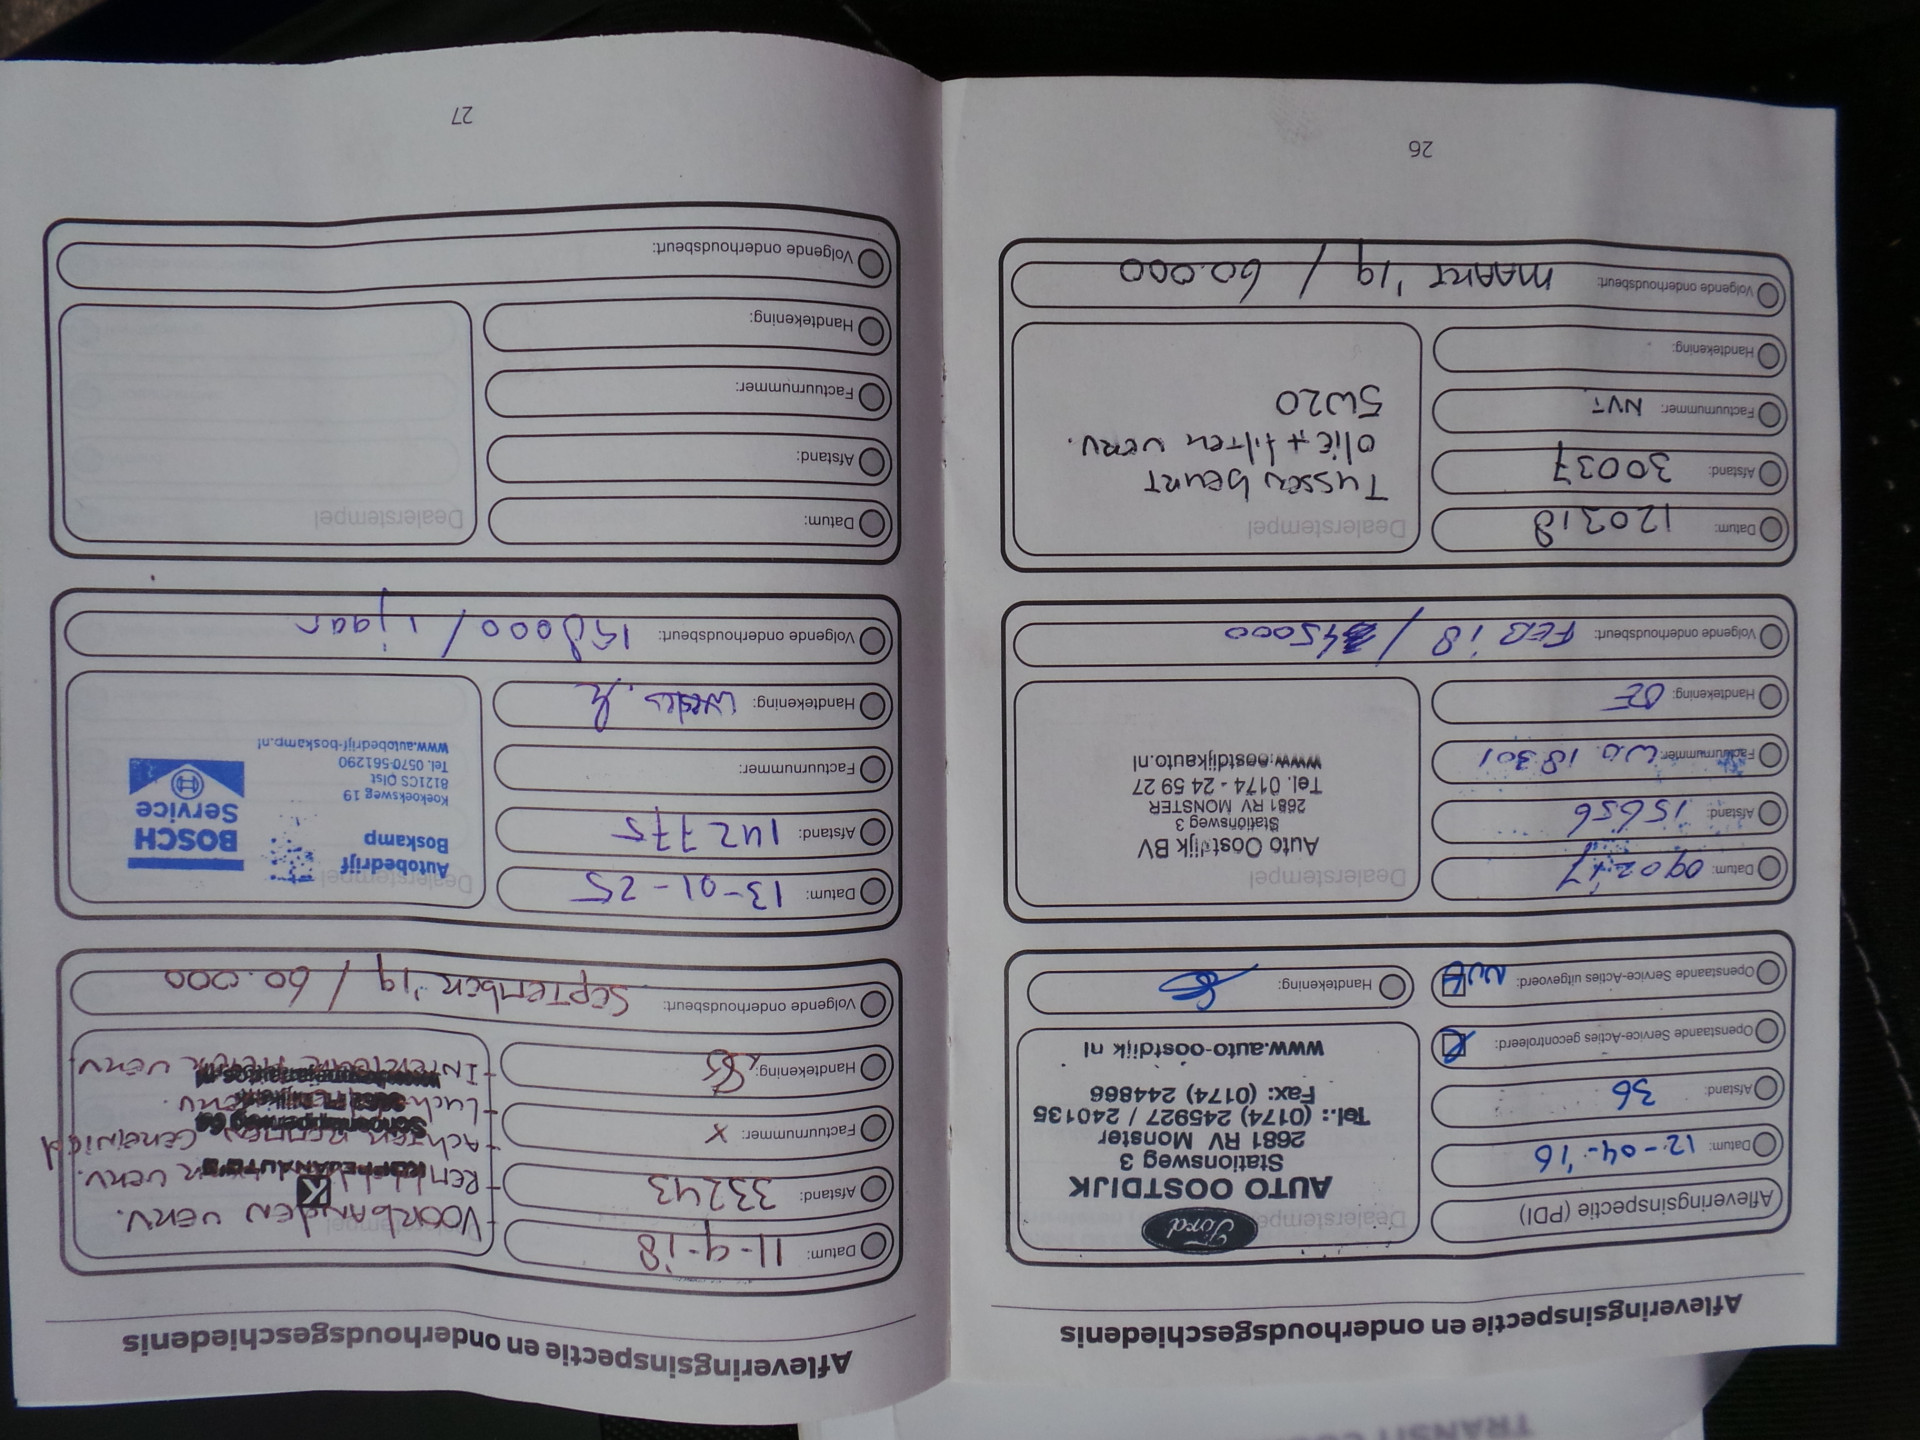 Afleveringsinspectie en onderhoudsgeschiedenis
Afleveringsinspectie (PDI)
Datum: 12-04-'16
Afstand: 36
Openstaande Service-Acties gecontroleerd:
Openstaande Service-Acties uitgevoerd: NVT
Dealerstempel
Ford
AUTO OOSTDIJK
Stationsweg 3
2681 RV Monster
Tel.: (0174) 245927 / 240135
Fax: (0174) 244866
www.auto-oostdijk nl
Handtekening:
Datum: 090217
Afstand: 15656
Factuurnummer: W.O. 18301
Handtekening:
Dealerstempel
Auto Oostdijk BV
Stationsweg 3
2681 RV MONSTER
Tel. 0174 - 24 59 27
www.oostdijkauto.nl
Volgende onderhoudsbeurt: FEB 18 / 45000
Datum: 120318
Afstand: 30037
Factuurnummer: NVT
Handtekening:
Dealerstempel
Tussenbeurt
olie + filter verv.
5W20
Volgende onderhoudsbeurt: MAART '19 / 60.000
26
Afleveringsinspectie en onderhoudsgeschiedenis
Datum: 11-9-18
Afstand: 33243
Factuurnummer: x
Handtekening:
Dealerstempel
VOORBANDEN VERV.
K
KOPPEJANAUTO'S
ACHTER REMMEN GEREINIGD
INTERIEUR FILTER VERV
Volgende onderhoudsbeurt: SEPTEMBER '19 / 60.000
Datum: 13-01-25
Afstand: 142775
Factuurnummer:
Handtekening:
Dealerstempel
Autobedrijf
Boskamp
Koekoeksweg 19
8121CS Olst
Tel. 0570-561290
www.autobedrijf-boskamp.nl
BOSCH
Service
Volgende onderhoudsbeurt: 158000 / 1 jaar
Datum:
Afstand:
Factuurnummer:
Handtekening:
Dealerstempel
Volgende onderhoudsbeurt:
27
TRANSIT